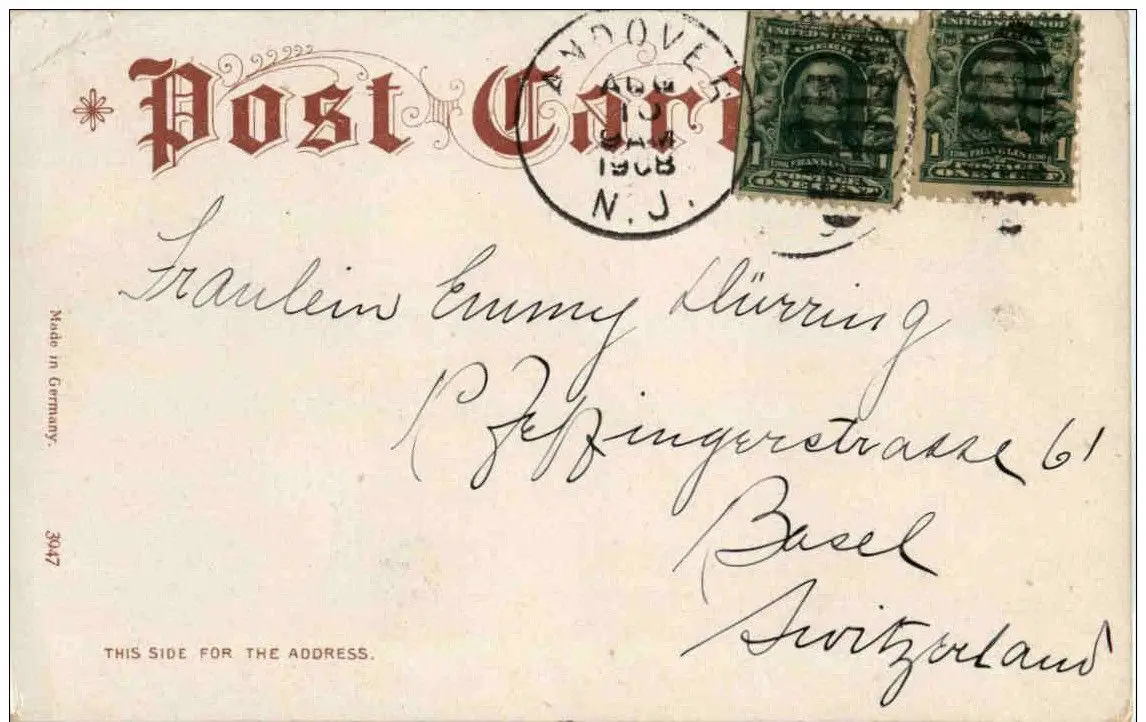 Post Card
ANDOVER
AUG
9 AM
1908
N.J.
UNITED STATES OF
AMERICA
1 FRANKLIN 1
POSTAGE
ONE CENT
UNITED STATES OF
AMERICA
1 FRANKLIN 1
POSTAGE
ONE CENT
Fraulein Emmy Dürring
Pfeffingerstrasse 61
Basel
Switzerland
Made in Germany.
3947
THIS SIDE FOR THE ADDRESS.